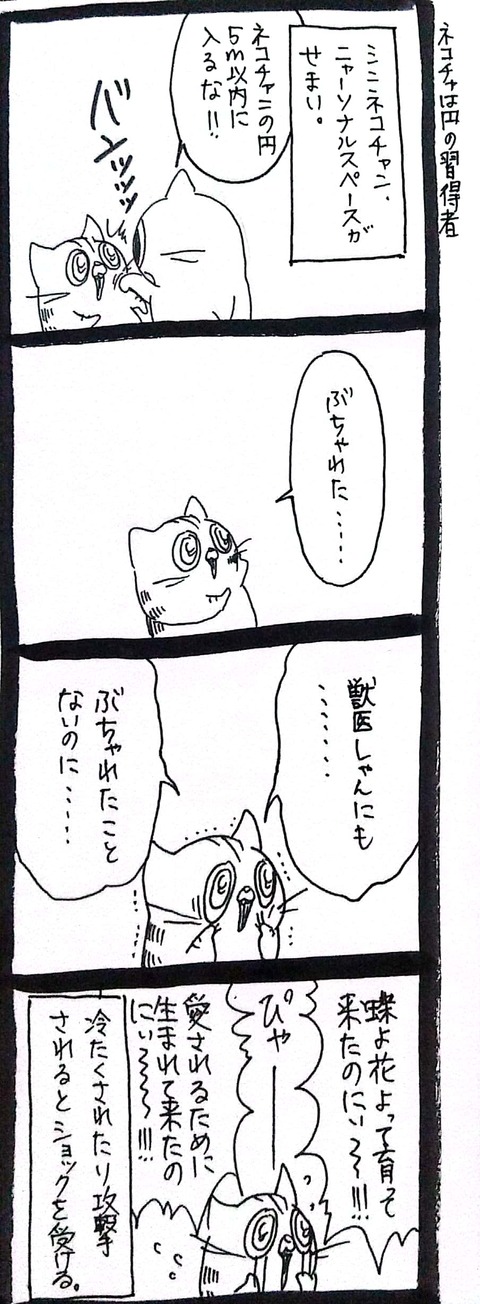 ネコチャは円の習得者
シンネコチャン、
ニャーソナルスペースが
せまい。
ネコチャンの円
5m以内に
入るな!!
バンッッッ
ぶちゃれた……
獣医しゃんにも
……
ぶちゃれたこと
ないのに……
蝶よ花よって育って
来たのにぃ〜〜!!!
ぴゃー
愛されるために
生まれて来たの
にぃ〜〜〜!!!
冷たくされたり攻撃
されるとショックを受ける。